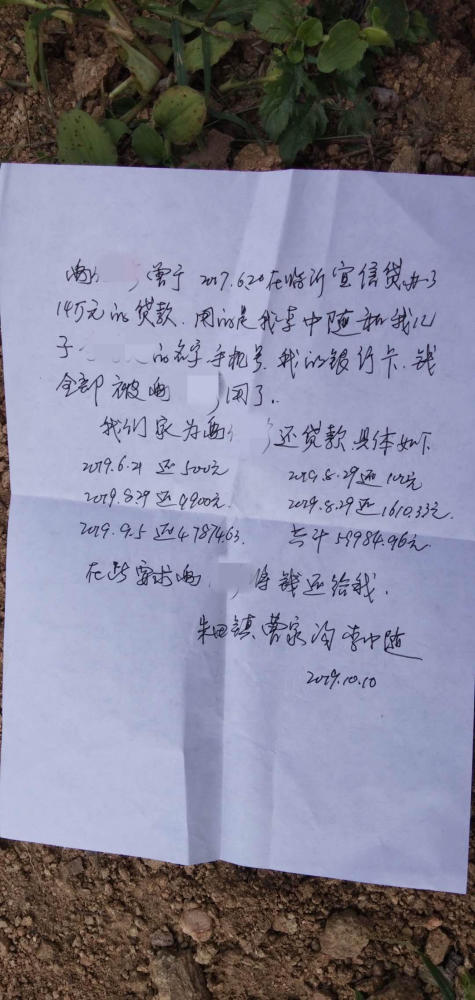 曾于2017.6.20在临沂宜信贷办了
14万元的贷款.用的是我李中随和我儿
子 的名字手机号.我的银行卡.钱
全部被 用了.
我们家为 还贷款具体如下
2019.6.21 还5000元 2019.8.29还100元
2019.8.29还4900元 2019.8.29还1610.33元.
2019.9.5还47874.63. 共计59984.96元.
在此要求 将钱还给我.
朱田镇曹家沟李中随
2019.10.10